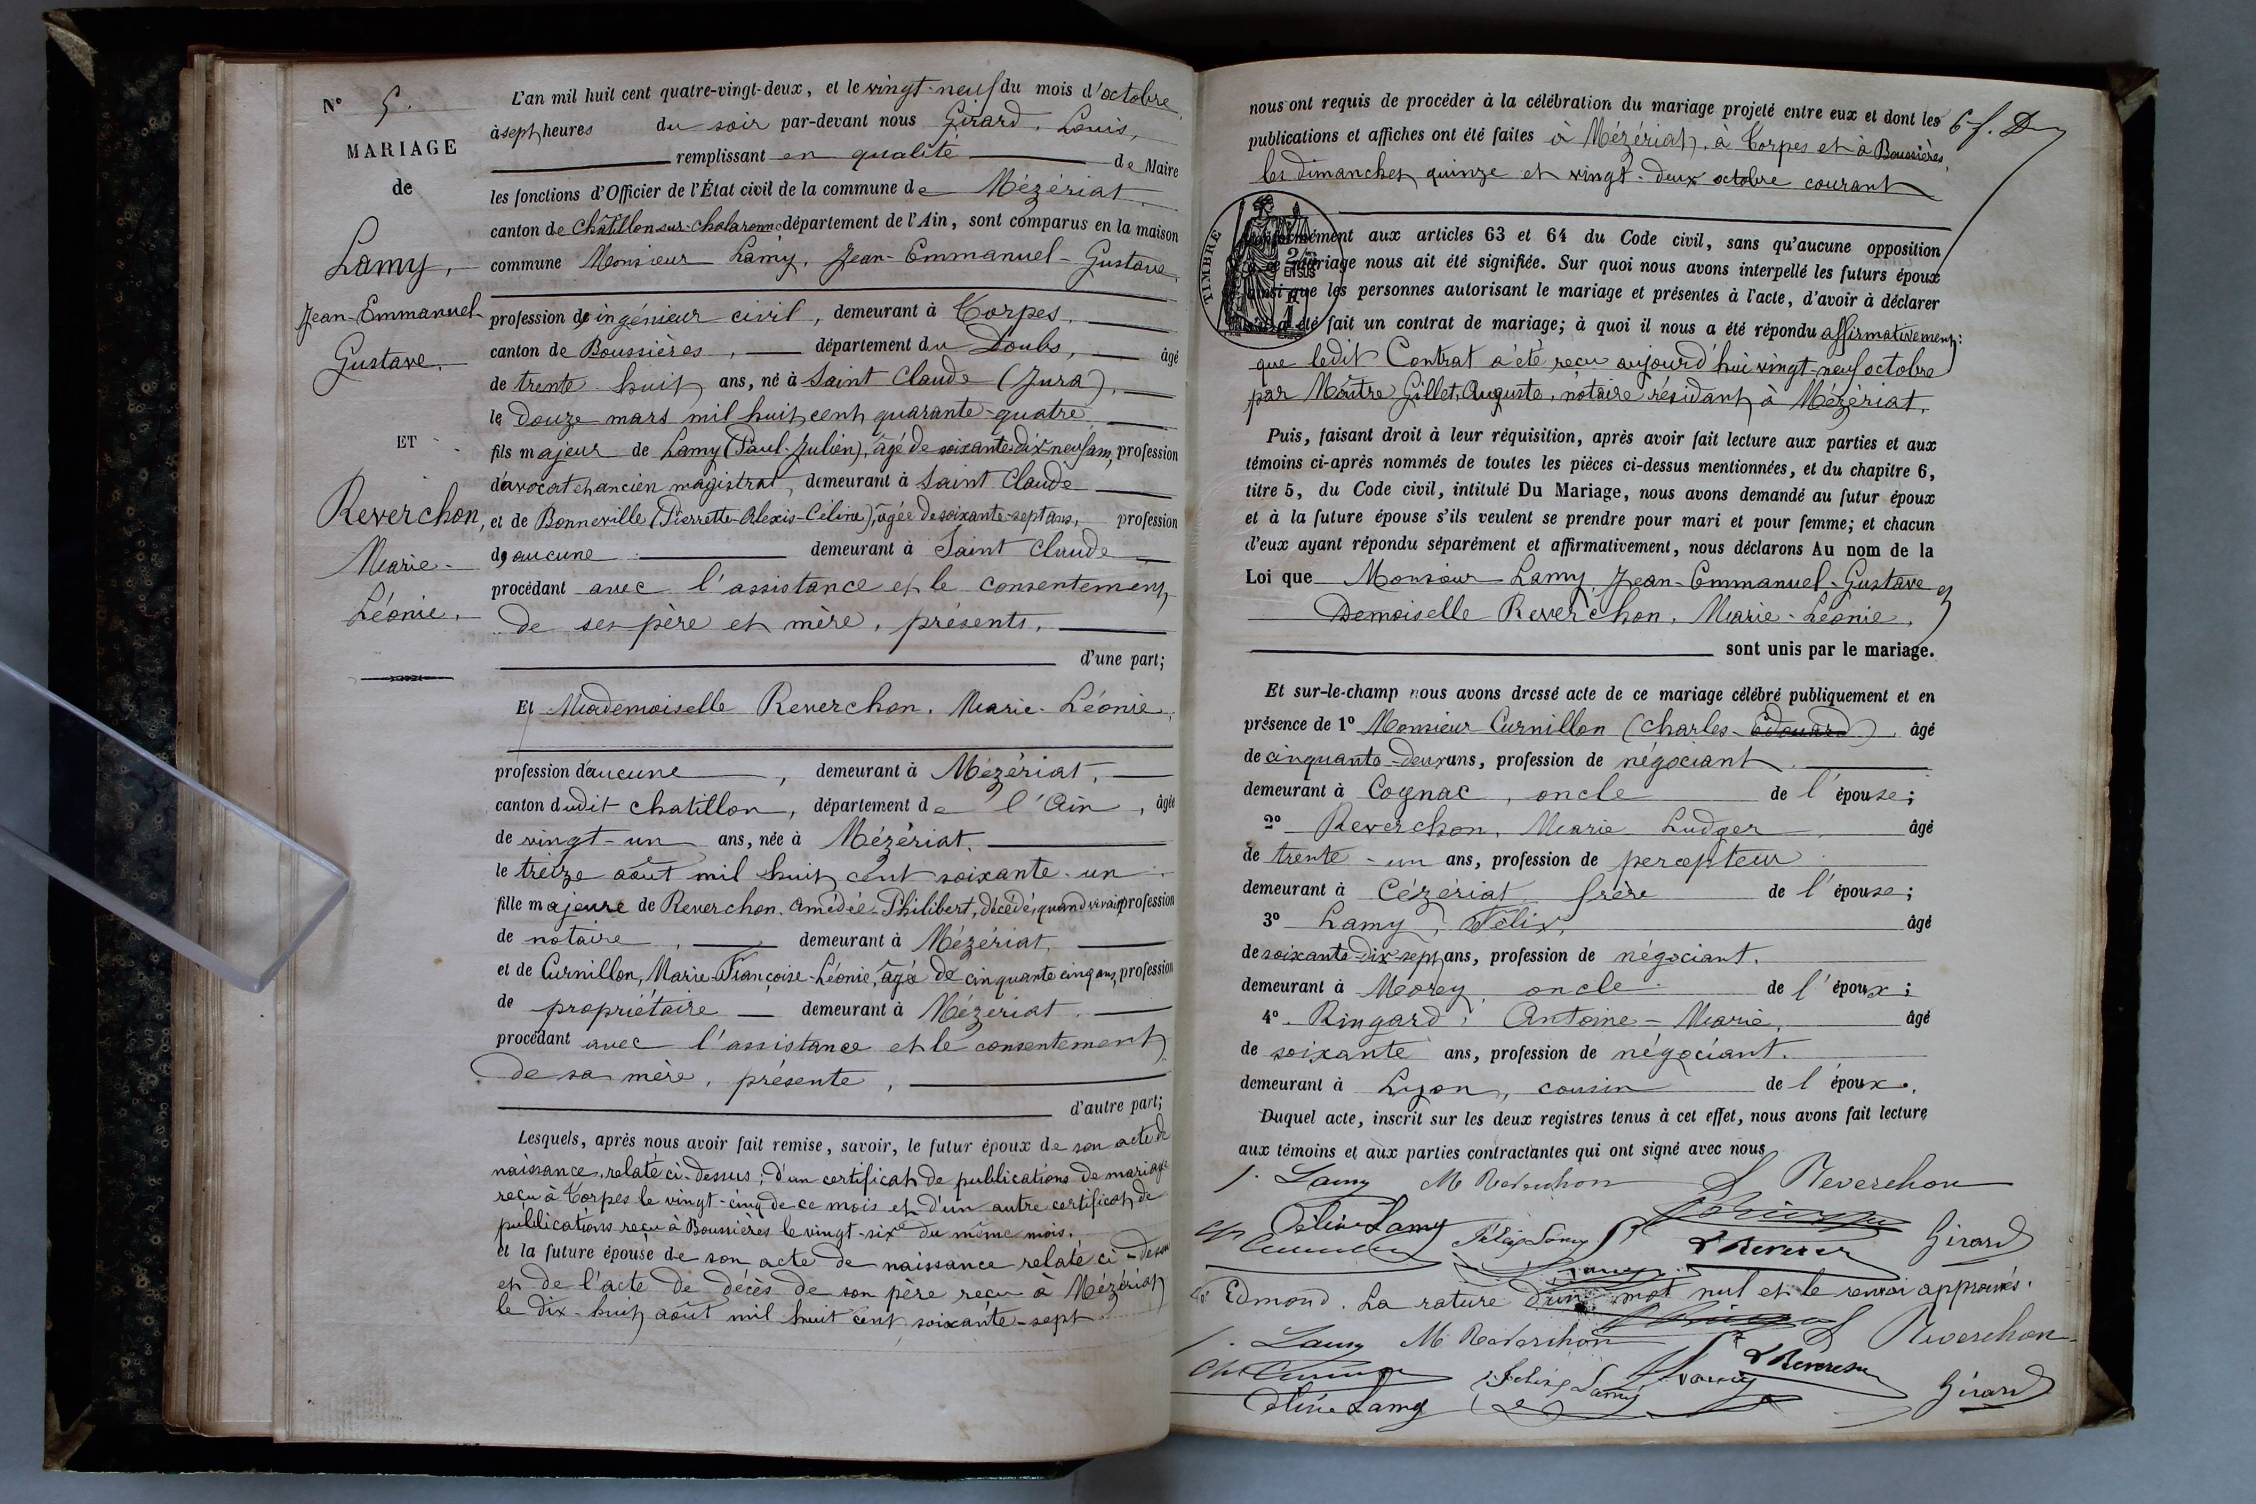 N° 5.
MARIAGE
de
Lamy,
Jean-Emmanuel
Gustave.
ET
Reverchon,
Marie-
Léonie.
L'an mil huit cent quatre-vingt-deux, et le vingt-neuf du mois d'octobre
à sept heures du soir par-devant nous Girard, Louis,
remplissant en qualité de Maire
les fonctions d'Officier de l'État civil de la commune de Mézériat
canton de Châtillon-sur-Chalaronne département de l'Ain, sont comparus en la maison
commune Monsieur Lamy, Jean-Emmanuel-Gustave
profession d'ingénieur civil, demeurant à Torpes,
canton de Boussières, département du Doubs, âgé
de trente-huit ans, né à Saint Claude (Jura),
le douze mars mil huit cent quarante-quatre
fils majeur de Lamy (Paul-Julien), âgé de soixante dix-neuf ans, profession
d'avocat et ancien magistrat, demeurant à Saint Claude
et de Bonneville (Pierrette-Alexis-Céline), âgée de soixante-sept ans, profession
d'aucune demeurant à Saint Claude
procédant avec l'assistance et le consentement
de ses père et mère, présents,
d'une part;
Et Mademoiselle Reverchon, Marie-Léonie,
profession d'aucune, demeurant à Mézériat,
canton dudit Chatillon, département de l'Ain, âgée
de vingt-un ans, née à Mézériat,
le treize août mil huit cent soixante-un
fille majeure de Reverchon, Amédée-Philibert, décédé, quand vivait profession
de notaire, demeurant à Mézériat,
et de Curnillon, Marie-Françoise-Léonie, âgée de cinquante cinq ans, profession
de propriétaire demeurant à Mézériat,
procédant avec l'assistance et le consentement
de sa mère, présente,
d'autre part;
Lesquels, après nous avoir fait remise, savoir, le futur époux de son acte de
naissance, relaté ci-dessus, d'un certificat de publications de mariage
reçu à Torpes le vingt-cinq de ce mois et d'un autre certificat de
publications reçu à Boussières le vingt-six du même mois.
et la future épouse de son acte de naissance relaté ci-dessus
et de l'acte de décès de son père reçu à Mézériat
le dix-huit août mil huit cent soixante-sept
nous ont requis de procéder à la célébration du mariage projeté entre eux et dont les
publications et affiches ont été faites à Mézériat, à Torpes et à Boussières
les dimanches quinze et vingt-deux octobre courant
TIMBRE
conformément aux articles 63 et 64 du Code civil, sans qu'aucune opposition
à ce mariage nous ait été signifiée. Sur quoi nous avons interpellé les futurs époux
ainsi que les personnes autorisant le mariage et présentes à l'acte, d'avoir à déclarer
s'il a été fait un contrat de mariage; à quoi il nous a été répondu affirmativement:
que ledit Contrat a été reçu aujourd'hui vingt-neuf octobre
par Maître Gillet, Auguste, notaire résidant à Mézériat.
Puis, faisant droit à leur réquisition, après avoir fait lecture aux parties et aux
témoins ci-après nommés de toutes les pièces ci-dessus mentionnées, et du chapitre 6,
titre 5, du Code civil, intitulé Du Mariage, nous avons demandé au futur époux
et à la future épouse s'ils veulent se prendre pour mari et pour femme; et chacun
d'eux ayant répondu séparément et affirmativement, nous déclarons Au nom de la
Loi que Monsieur Lamy, Jean-Emmanuel-Gustave et
Demoiselle Reverchon, Marie-Léonie,
sont unis par le mariage.
Et sur-le-champ nous avons dressé acte de ce mariage célébré publiquement et en
présence de 1° Monsieur Curnillon (Charles-Edouard) âgé
de cinquante-deux ans, profession de négociant
demeurant à Cognac, oncle de l'épouse;
2° Reverchon, Marie Ludger âgé
de trente-un ans, profession de percepteur
demeurant à Cézériat frère de l'épouse;
3° Lamy, Félix, âgé
de soixante-dix-sept ans, profession de négociant.
demeurant à Morey, oncle de l'époux;
4° Ringard, Antoine-Marie, âgé
de soixante ans, profession de négociant.
demeurant à Lyon, cousin de l'époux.
Duquel acte, inscrit sur les deux registres tenus à cet effet, nous avons fait lecture
aux témoins et aux parties contractantes qui ont signé avec nous
J. Lamy M Reverchon L Reverchon
Céline Lamy Félix Lamy Girard
Edmond. La rature d'un mot nul et le renvoi approuvés.
J. Lamy M Reverchon L Reverchon
Félix Lamy Girard
Céline Lamy